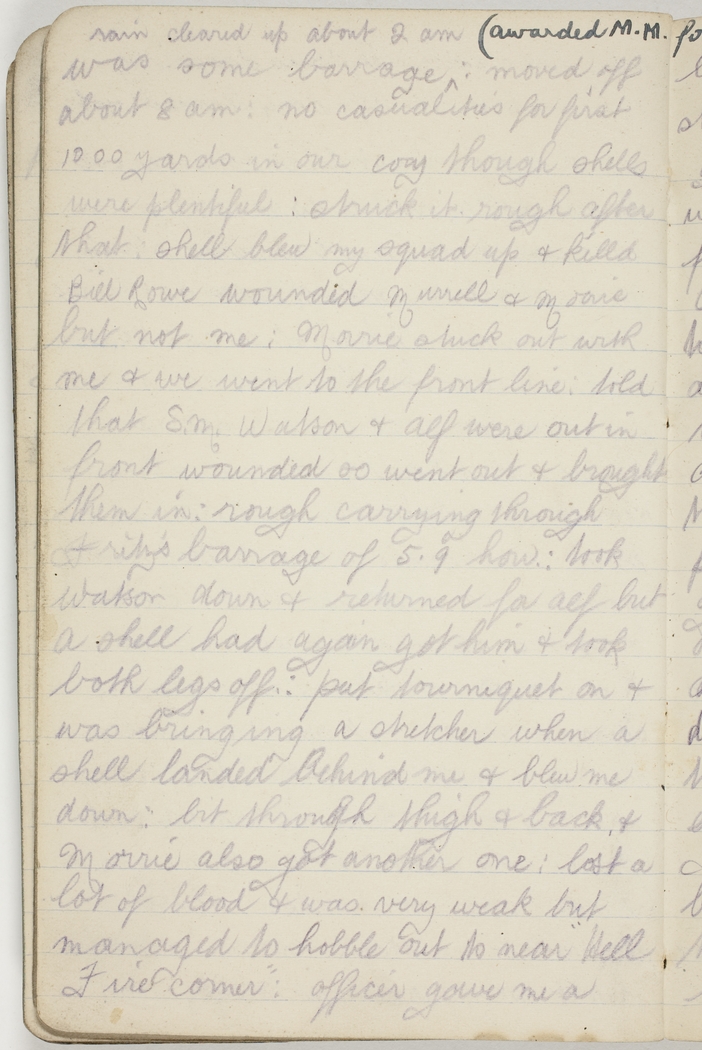 rain cleared up about 2 am (awarded M.M. fo
was some barrage : moved off
about 8 am : no casualities for first
1000 yards in our coay though shells
were plentiful : struck it rough after
that : shell blew my squad up & killd
Bill Rowe wounded Murrell & Morrie
but not me ; Morrie stuck out with
me & we went to the front line : told
that S.M. Watson & alf were out in
front wounded so went out & brought
them in : rough carrying through
Fritz's barrage of 5.9 how. : took
Watson down & returned for alf but
a shell had again got him & took
both legs off : put tourniquet on &
was bringing a stretcher when a
shell landed behind me & blew me
down : bit through thigh & back &
Morrie also got another one ; lost a
lot of blood & was very weak but
managed to hobble out to near "Hell
Fire corner" : officer gave me a